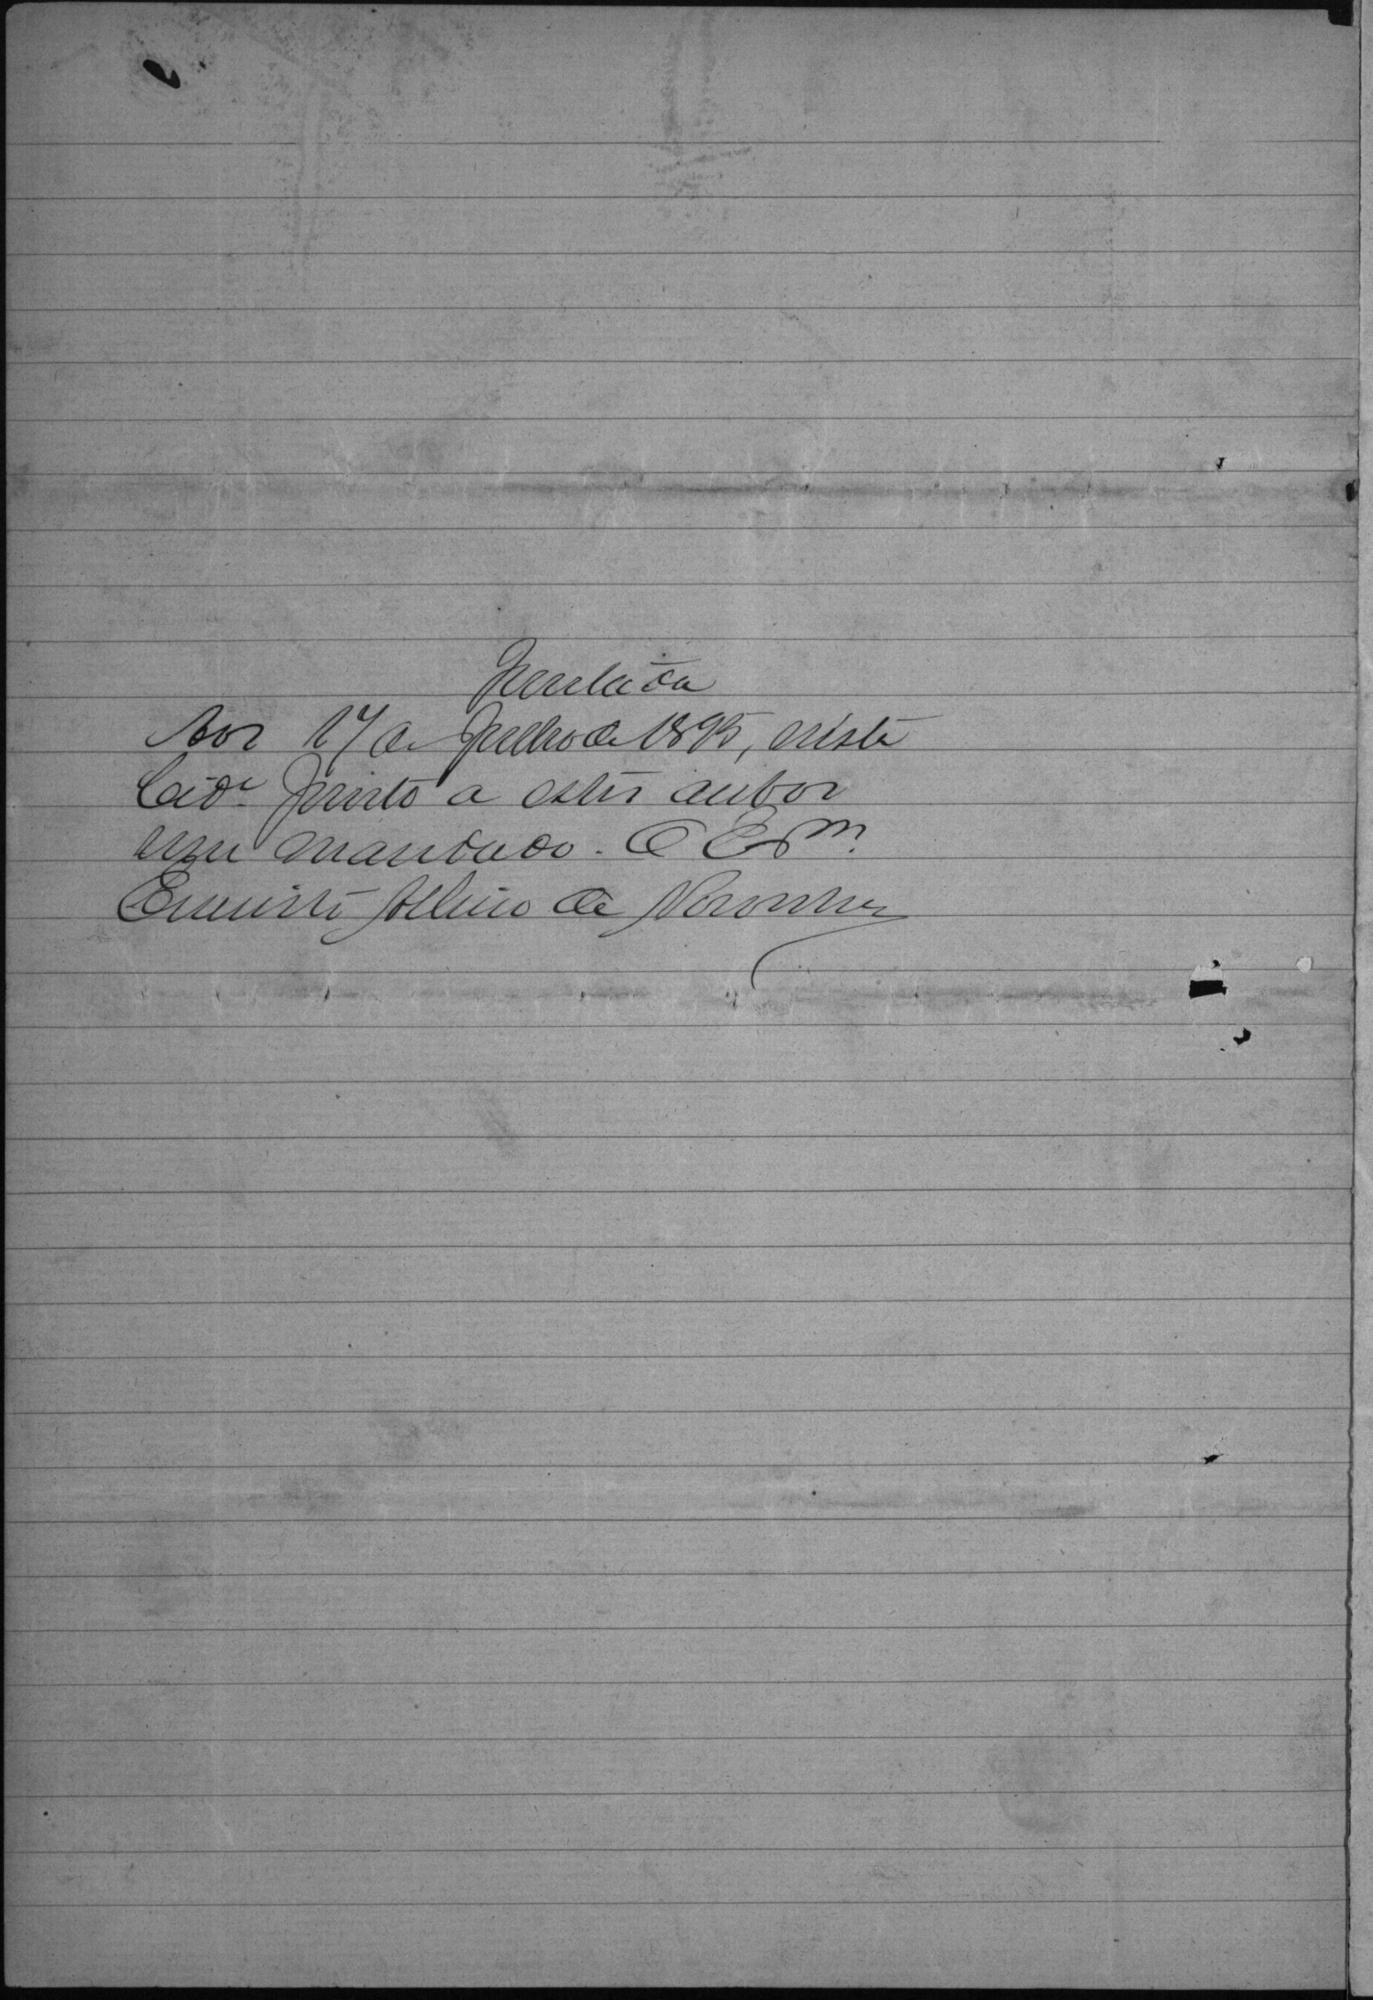 Juntada
Aos 17 de Julho de 1895, nesta
Cid.e junto a estes autos
um mandado. O Esm.
Ernesto Albino de Noronha